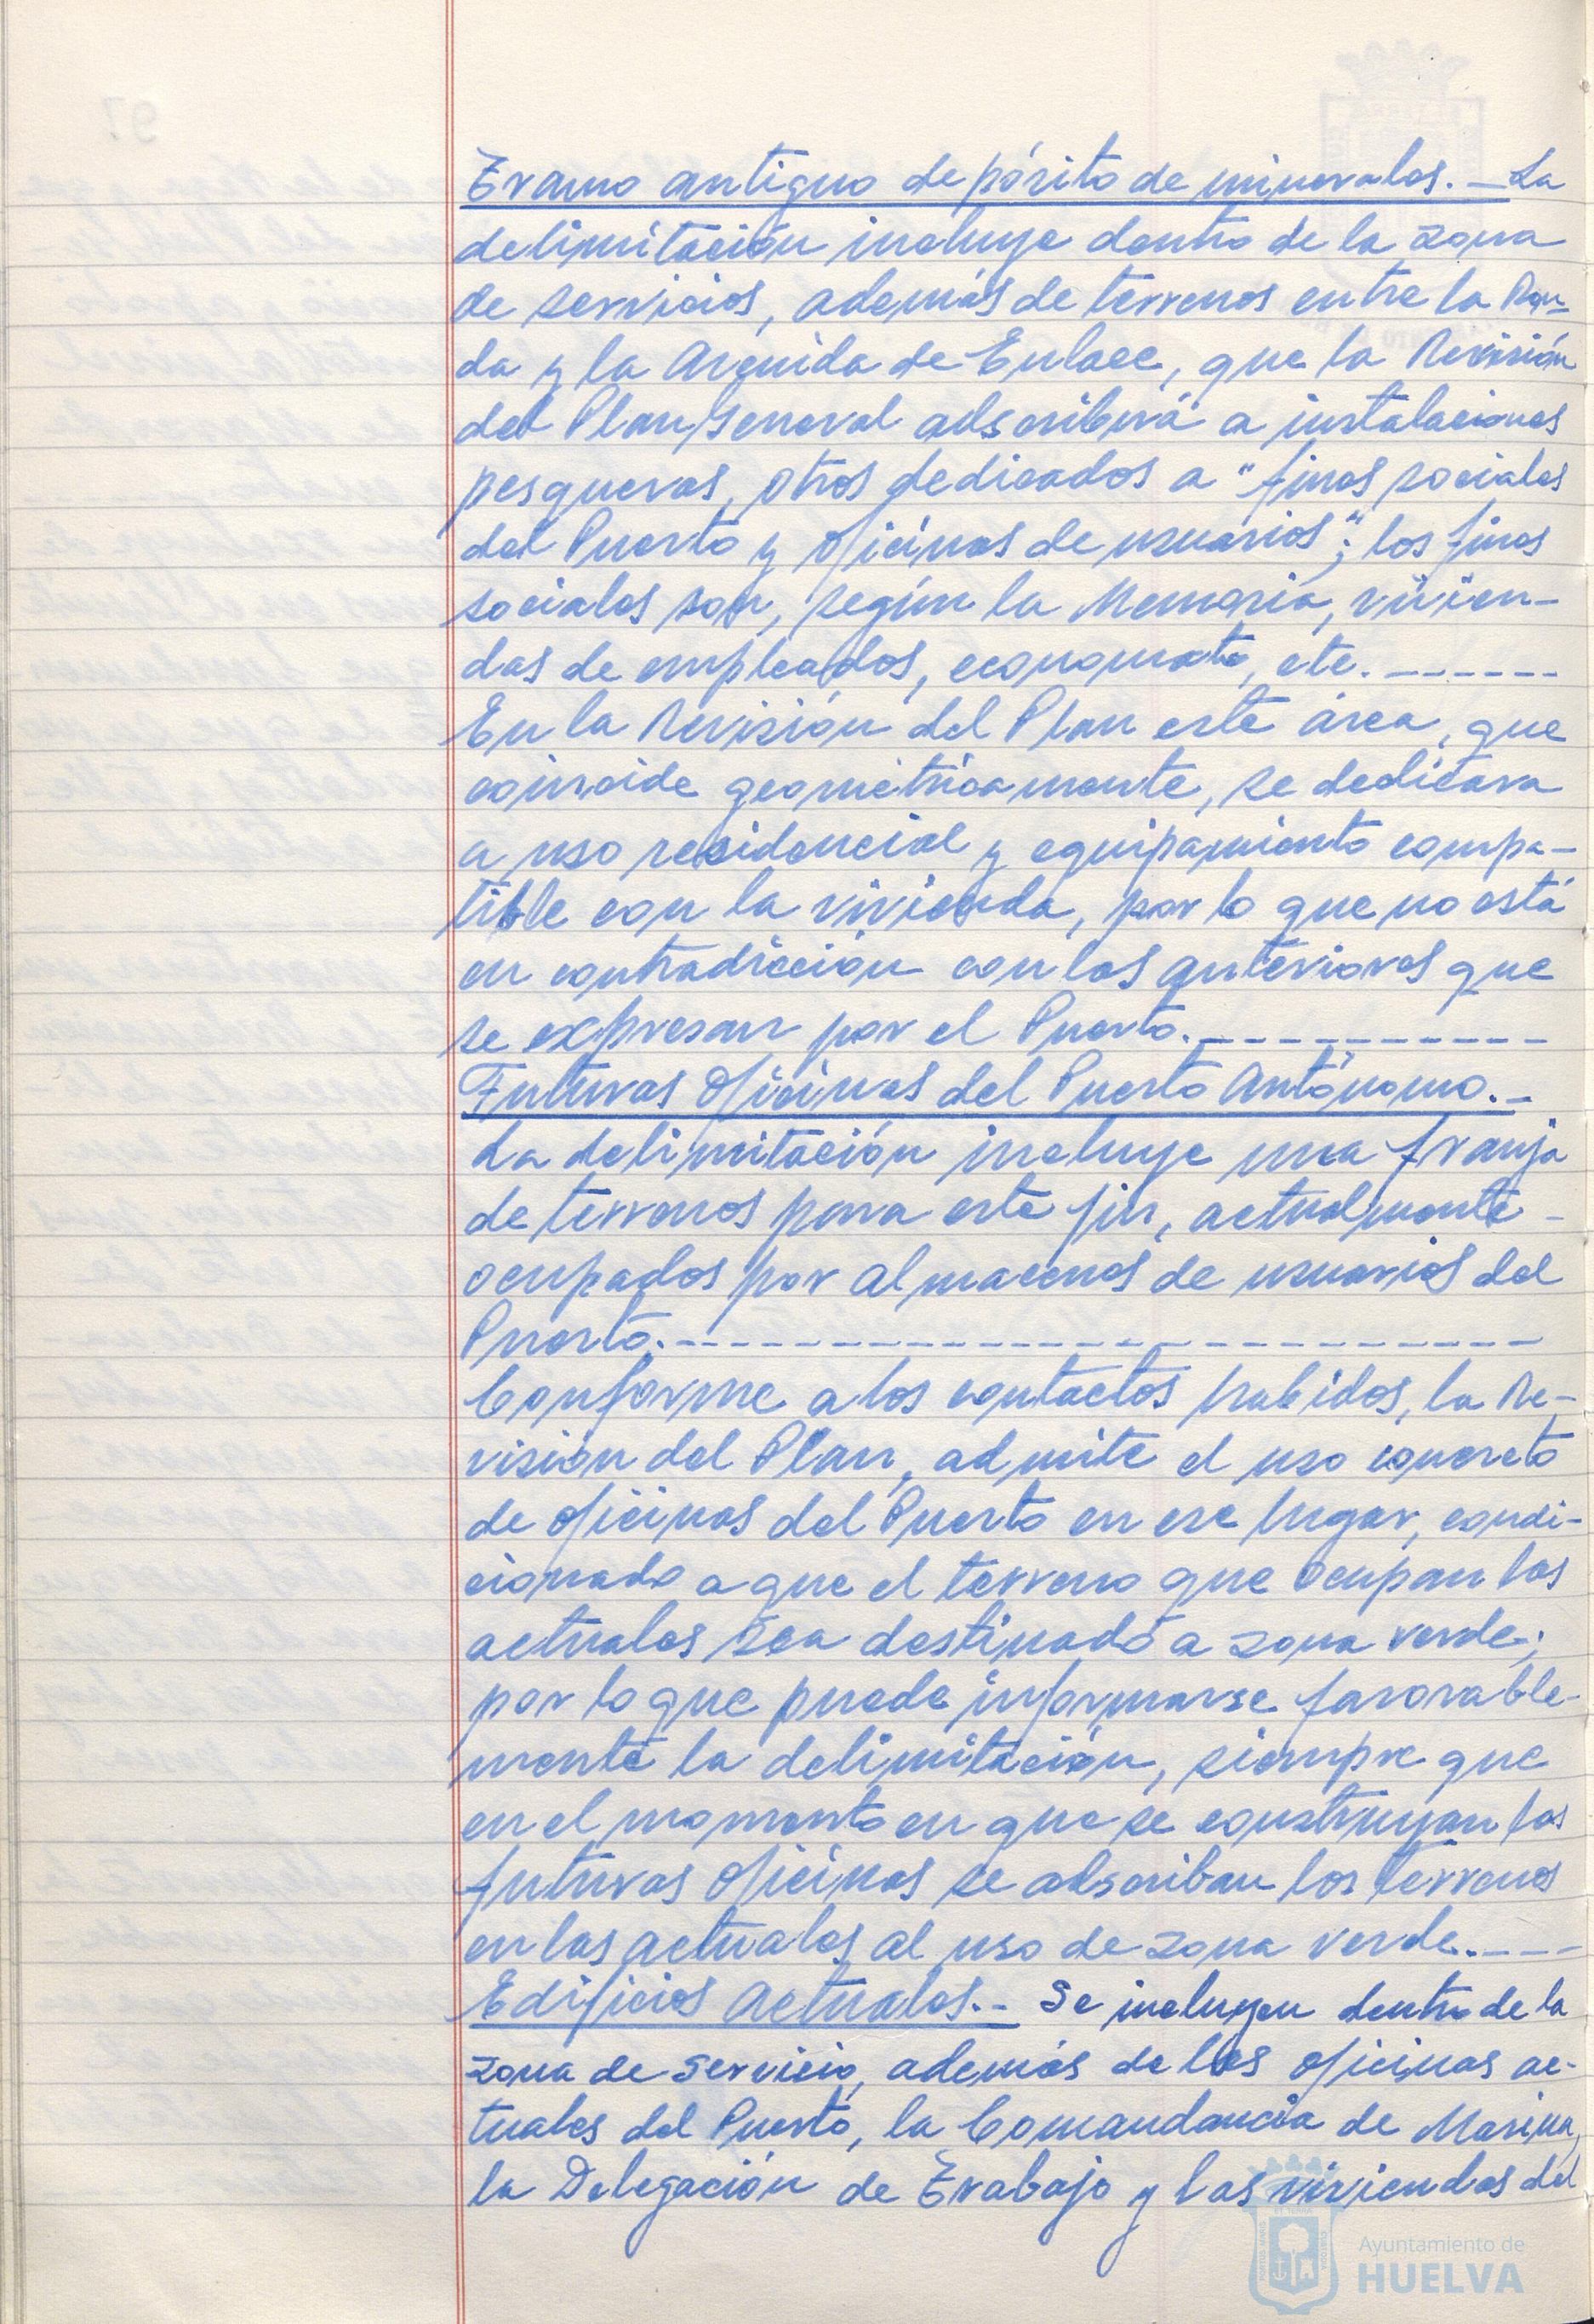 Tramo antiguo depósito de minerales.- La
delimitación incluye dentro de la zona
de servicios, además de terrenos entre la Ron-
da y la Avenida de Enlace, que la Revisión
del Plan General adscribirá a instalaciones
pesqueras, otros dedicados a "fines sociales
del Puerto y oficinas de usuarios"; los fines
sociales son, según la Memoria, vivien-
das de empleados, economato, etc.------
En la Revisión del Plan este área, que
coincide geométricamente, se dedicara
a uso residencial y equipamiento compa-
tible con la vivienda, por lo que no está
en contradicción con los anteriores que
se expresan por el Puerto.----------
Futuras Oficinas del Puerto Autónomo.-
La delimitación incluye una franja
de terrenos para este fin, actualmente -
ocupados por almacenes de usuarios del
Puerto.-------------------------
Conforme a los contactos habidos, la Re-
visión del Plan, admite el uso concreto
de oficinas del Puerto en ese lugar, condi-
cionado a que el terreno que ocupan las
actuales sea destinado a zona verde;
por lo que puede informarse favorable-
mente la delimitación, siempre que
en el momento en que se construyan las
futuras oficinas se adscriban los terrenos
en las actuales al uso de zona verde.----
Edificios Actuales.- Se incluyen dentro de la
zona de servicio, además de las oficinas ac-
tuales del Puerto, la Comandancia de Marina,
la Delegación de Trabajo y las viviendas del
Ayuntamiento de
HUELVA